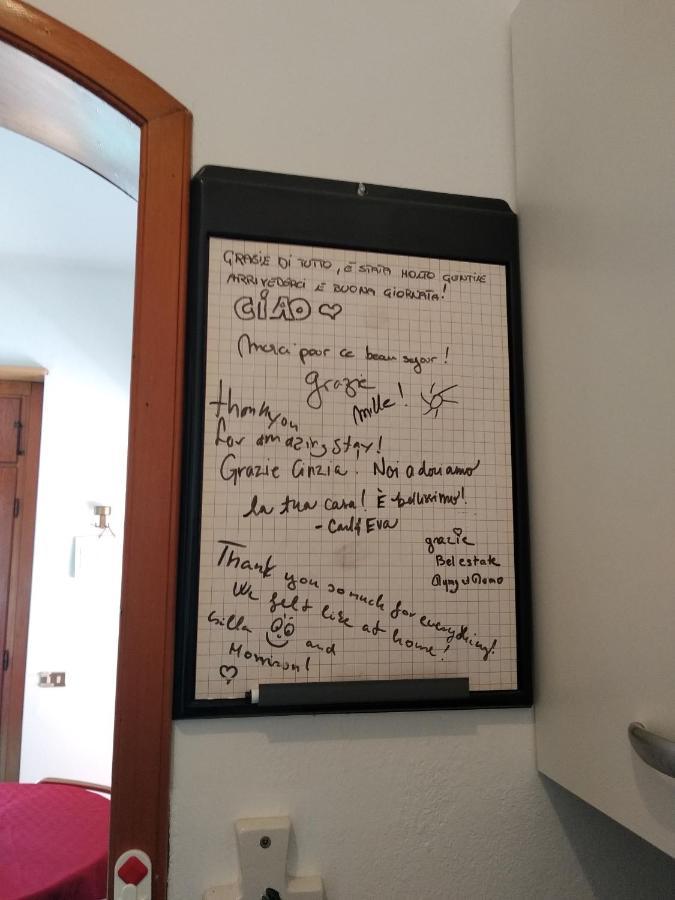 GRASIE DI TUTTO, È STATA MOLTO GENTILE
ARRIVEDERCI E BUONA GIORNATA!
CIAO
Merci pour ce beau sejour!
grazie
mille!
thankyou
for amazing stay!
Grazie Cinzia. Noi adoriamo
la tua casa! È bellissimo!
- Carl & Eva
grazie
Bel estate
Thank you so much for everything!
We felt like at home!
and
Morrison!